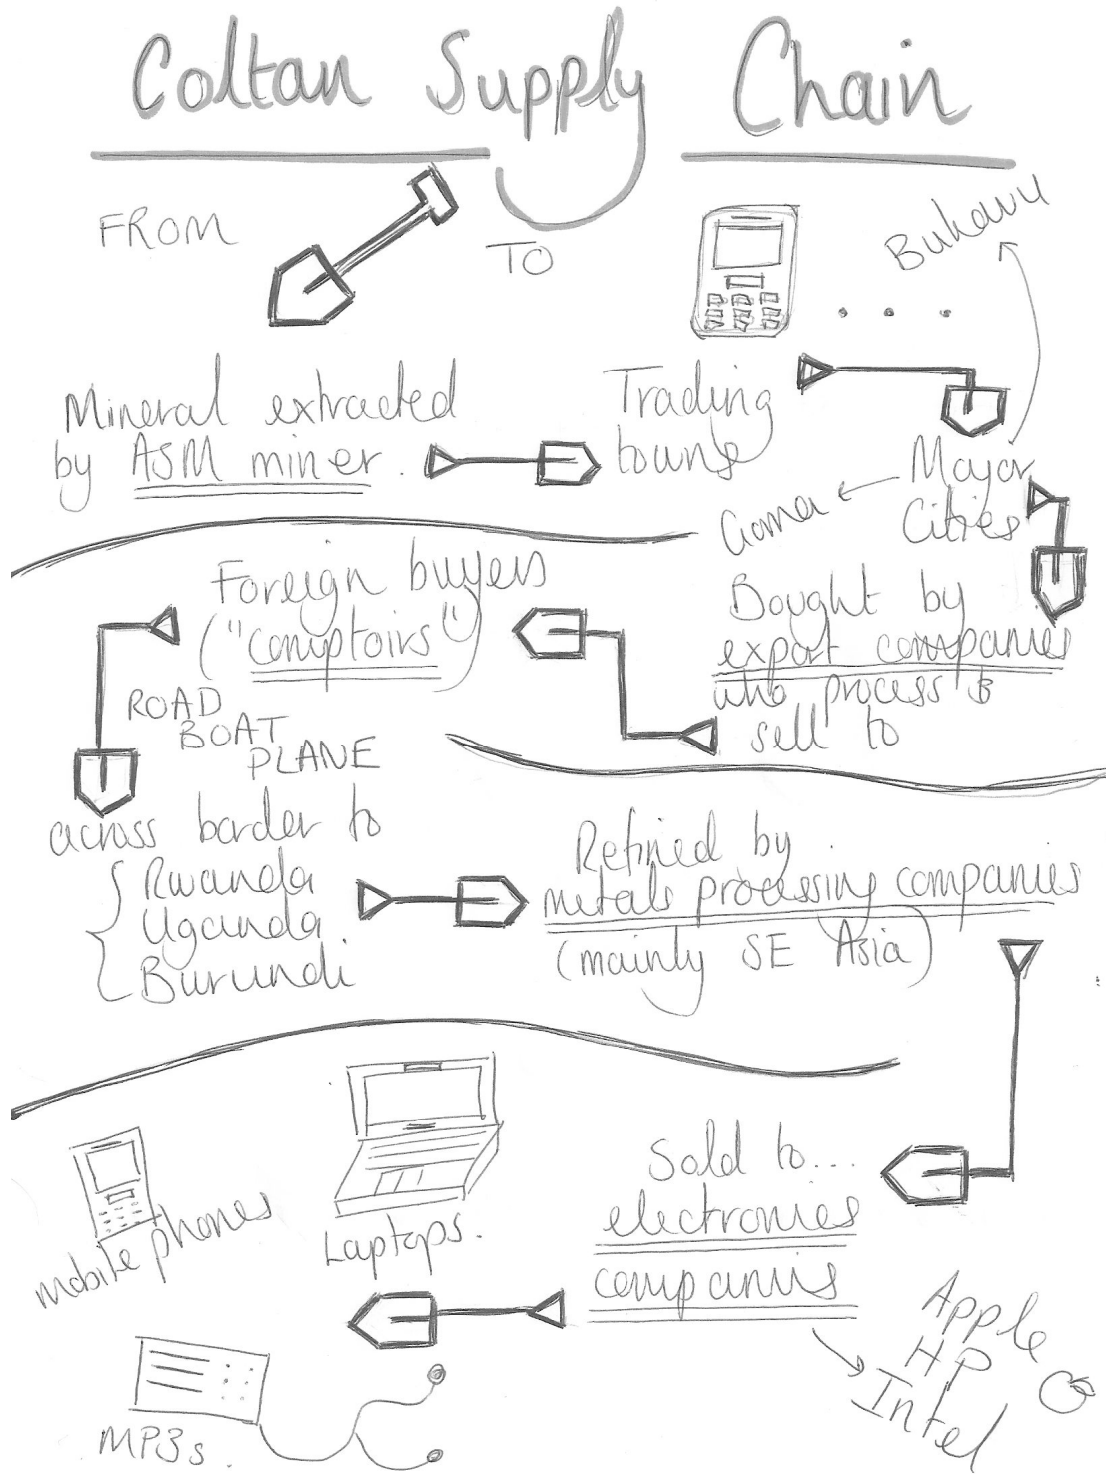 Coltan Supply Chain
FROM
TO
Bukavu
Mineral extracted
by ASM miner.
Trading
towns
Major
Cities
Goma
Bought by
export companies
who process &
sell to
Foreign buyers
("comptoirs")
ROAD
BOAT
PLANE
across border to
Rwanda
Uganda
Burundi
Refined by
metals processing companies
(mainly SE Asia)
Sold to...
electronics
companies
Apple
HP
Intel
Laptops.
mobile phones
MP3s.